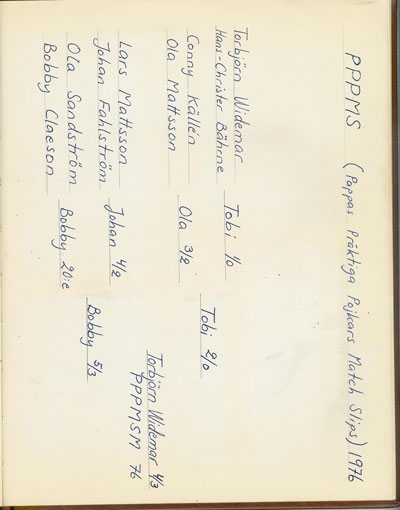 PPPMS (Pappas Präktiga Pojkars Match Slips) 1976
Torbjörn Widemar
Hans-Christer Bährne
Tobi 1/0
Conny Källén
Ola Mattsson
Ola 3/2
Tobi 2/0
Lars Mattsson
Johan Fahlström
Johan 4/2
Torbjörn Widemar 4/3
PPPMSM 76
Ola Sandström
Bobby Claeson
Bobby 20:e
Bobby 5/3